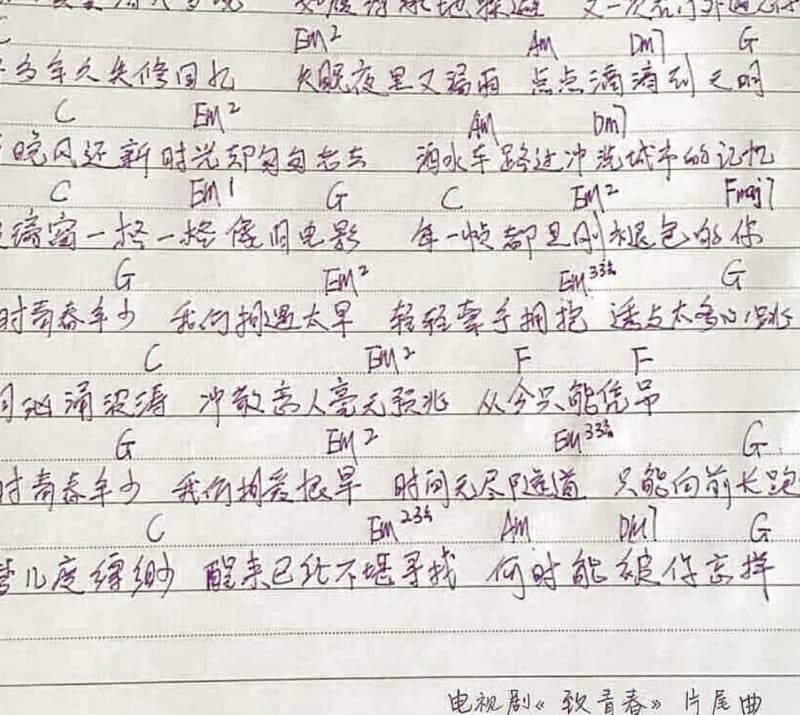 Em2 Am Dm7 G
年久失修回忆 大晚夜里又漏雨 点点滴滴到天明
C Em2 Am Dm7
晚风还新时光却匆匆老去 洒水车路过冲洗城市的记忆
C Em1 G C Em2 Fmaj7
窗一格一格像旧电影 每一帧都是刚褪色的你
G Em2 Em33 G
时青春年少 我们相遇太早 轻轻牵手拥抱 透支太多心跳
C Em2 F F
汹涌波涛 冲散离人毫无预兆 从今只能凭吊
G Em2 Em33 G
时青春年少 我们相爱很早 时间无尽隧道 只能向前长跑
C Em23 Am Dm7 G
几度缥缈 醒来已经不堪寻找 何时能被你忘掉
电视剧《致青春》片尾曲